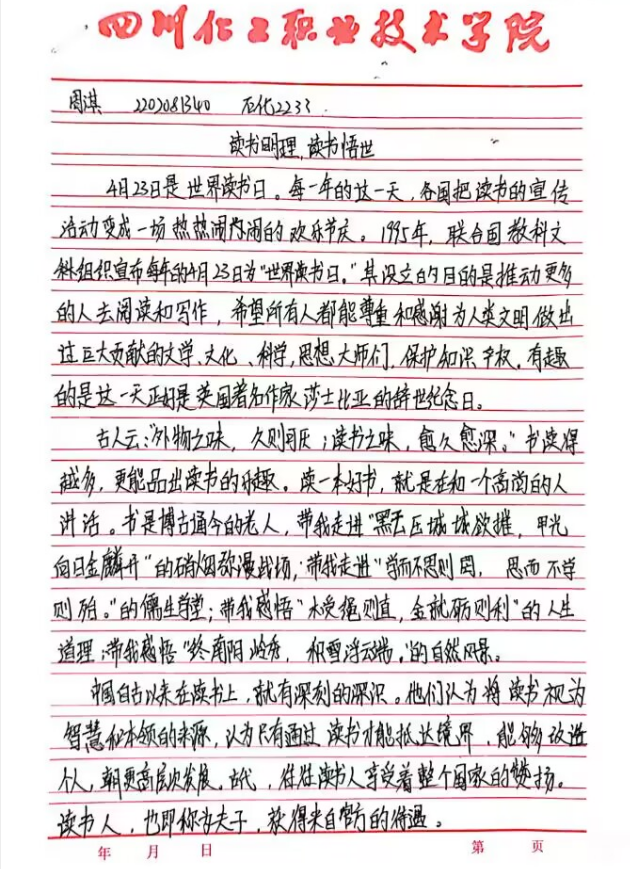 四川化工职业技术学院
周淇 2202081340 石化2233
读书明理,读书悟世
4月23日是世界读书日。每一年的这一天,各国把读书的宣传
活动变成一场热热闹闹的欢乐节庆。1995年,联合国教科文
科组织宣布每年的4月23日为“世界读书日。”其设立的目的是推动更多
的人去阅读和写作,希望所有人都能尊重和感谢为人类文明做出
过巨大贡献的文学、文化、科学,思想大师们,保护知识产权。有趣
的是这一天正好是英国著名作家莎士比亚的辞世纪念日。
古人云:“外物之味,久则可厌;读书之味,愈久愈深。”书读得
越多,更能品出读书的乐趣。读一本好书,就是在和一个高尚的人
讲话。书是博古通今的老人,带我走进“黑云压城城欲摧,甲光
向日金麟开”的硝烟弥漫战场;带我走进“学而不思则罔,思而不学
则殆。”的儒生学堂;带我感悟“木受绳则直,金就砺则利”的人生
道理;带我感悟“终南阴岭秀,积雪浮云端。”的自然风景。
中国自古以来在读书上,就有深刻的深识。他们认为将读书视为
智慧和本领的来源,认为只有通过读书才能抵达境界,能够改造
个人,朝更高层次发展。古代,往往读书人享受着整个国家的赞扬。
读书人,也即称为夫子,获得来自官方的待遇。
年 月 日 第 页